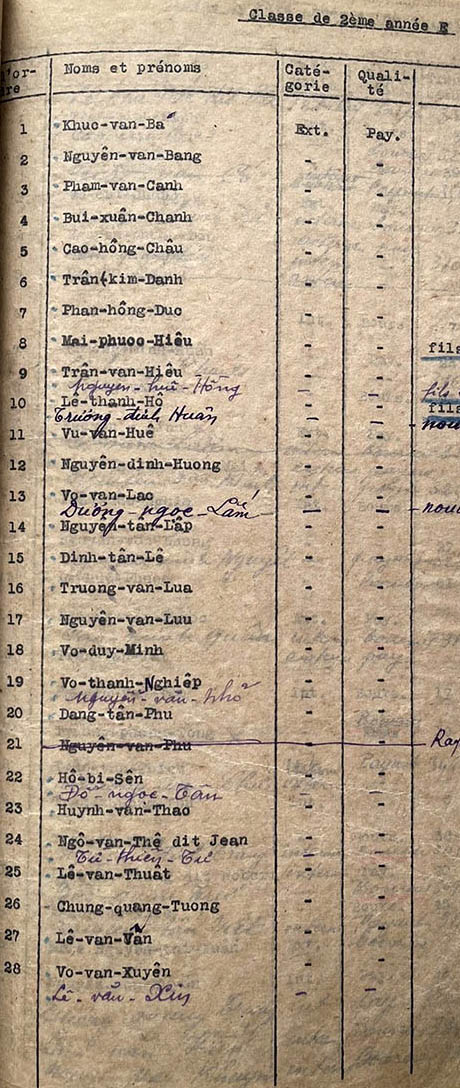 Classe de 2ème année E
l'or-
dre
Noms et prénoms
Caté-
gorie
Quali-
té
1 Khuc-van-Ba Ext. Pay.
2 Nguyên-van-Bang - -
3 Pham-van-Canh - -
4 Bui-xuân-Chanh - -
5 Cao-hông-Châu - -
6 Trân-kim-Danh - -
7 Phan-hông-Duc - -
8 Mai-phuoc-Hiêu - - fils
9 Trân-van-Hiêu - -
Nguyen-huê-Hông - - fils
10 Lê-thanh-Hô - - fils
Trương-đình Huân - - nou
11 Vu-van-Huê - -
12 Nguyên-dinh-Huong - -
13 Vo-van-Lac - -
Dương-ngoc-Lắm - - nou
14 Nguyên-tân-Lâp - -
15 Dinh-tân-Lê - -
16 Truong-van-Lua - -
17 Nguyên-van-Luu - -
18 Vo-duy-Minh - -
19 Vo-thanh-Nghiêp - -
Nguyễn-văn-Nhỏ
20 Dang-tân-Phu - -
21 Nguyên-van-Phu - - Ray
22 Hô-bi-Sên - -
Đỗ-ngoc-Tân - -
23 Huynh-van-Thao - -
24 Ngô-van-Thê dit Jean - -
Từ-thiện-Tư - -
25 Lê-van-Thuât - -
26 Chung-quang-Tuong - -
27 Lê-van-Vân - -
28 Vo-van-Xuyên - -
Lê-văn-Xin - -